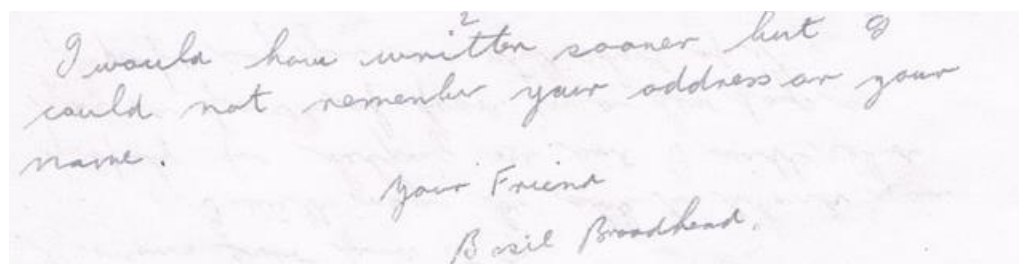 2
I would have written sooner but I
could not remember your address or your
name.
Your Friend
Basil Broadhead.